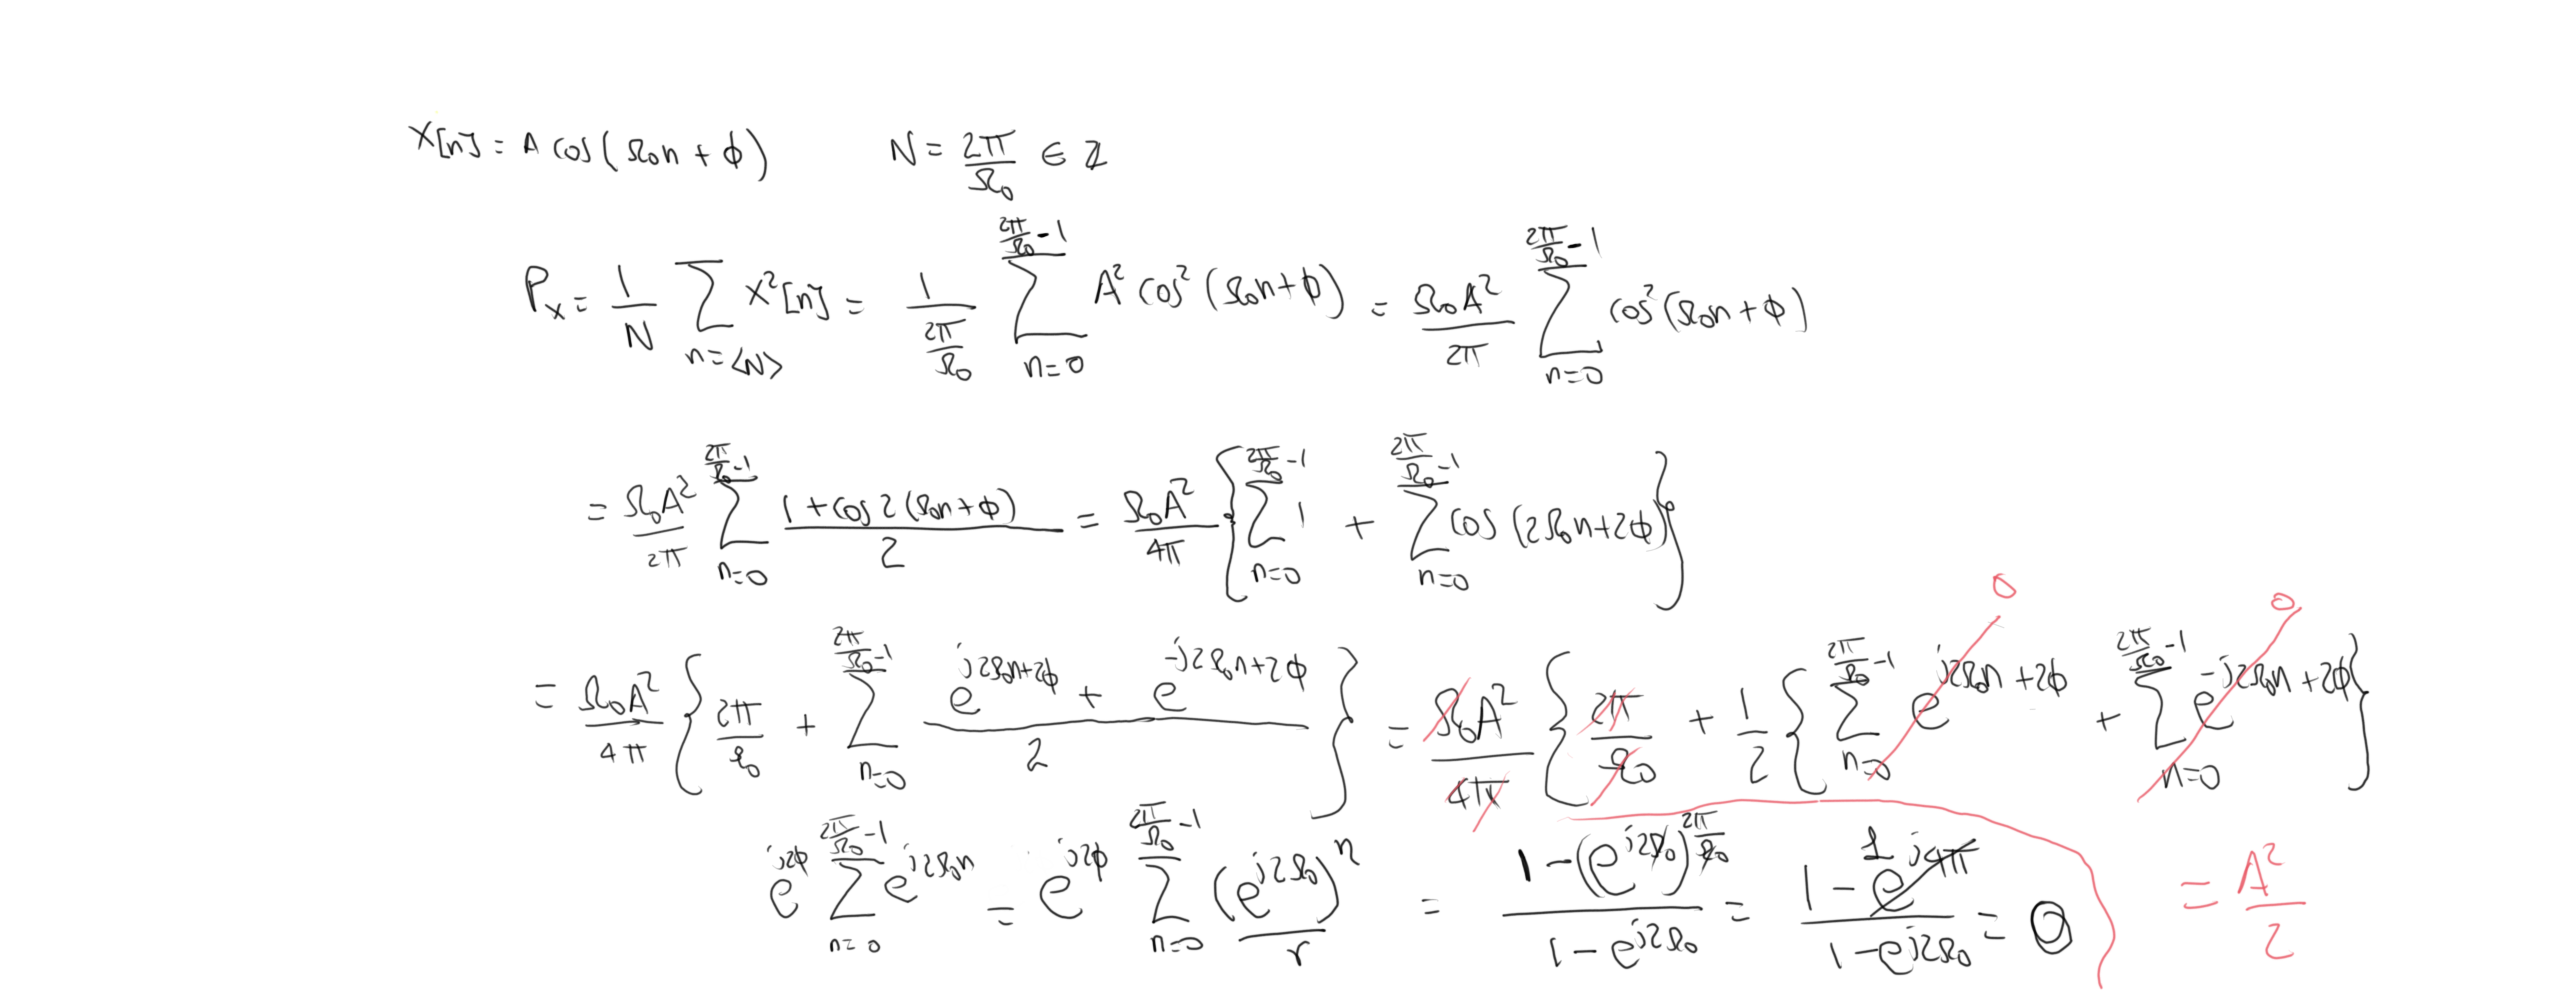 x[n] = A cos(Ω₀n + ϕ) N = 2π/Ω₀ ∈ ℤ
Pₓ = 1/N ∑_{n=<N>} x²[n] = 1/(2π/Ω₀) ∑_{n=0}^{2π/Ω₀ -1} A² cos²(Ω₀n+ϕ) = Ω₀A²/2π ∑_{n=0}^{2π/Ω₀ -1} cos²(Ω₀n + ϕ)
= Ω₀A²/2π ∑_{n=0}^{2π/Ω₀ -1} (1 + cos 2(Ω₀n+ϕ))/2 = Ω₀A²/4π { ∑_{n=0}^{2π/Ω₀ -1} 1 + ∑_{n=0}^{2π/Ω₀ -1} cos (2Ω₀n+2ϕ) }
= Ω₀A²/4π { 2π/Ω₀ + ∑_{n=0}^{2π/Ω₀ -1} (e^{j2Ω₀n+2ϕ} + e^{-j2Ω₀n+2ϕ})/2 } = Ω₀A²/4π { 2π/Ω₀ + 1/2 { ∑_{n=0}^{2π/Ω₀ -1} e^{j2Ω₀n+2ϕ} 0 + ∑_{n=0}^{2π/Ω₀ -1} e^{-j2Ω₀n+2ϕ} 0 }
e^{j2ϕ} ∑_{n=0}^{2π/Ω₀ -1} e^{j2Ω₀n} = e^{j2ϕ} ∑_{n=0}^{2π/Ω₀ -1} (e^{j2Ω₀})^n r = (1-(e^{j2Ω₀})^{2π/Ω₀})/(1-e^{j2Ω₀}) = (1-e^{j4π} 1)/(1-e^{j2Ω₀}) = 0 = A²/2